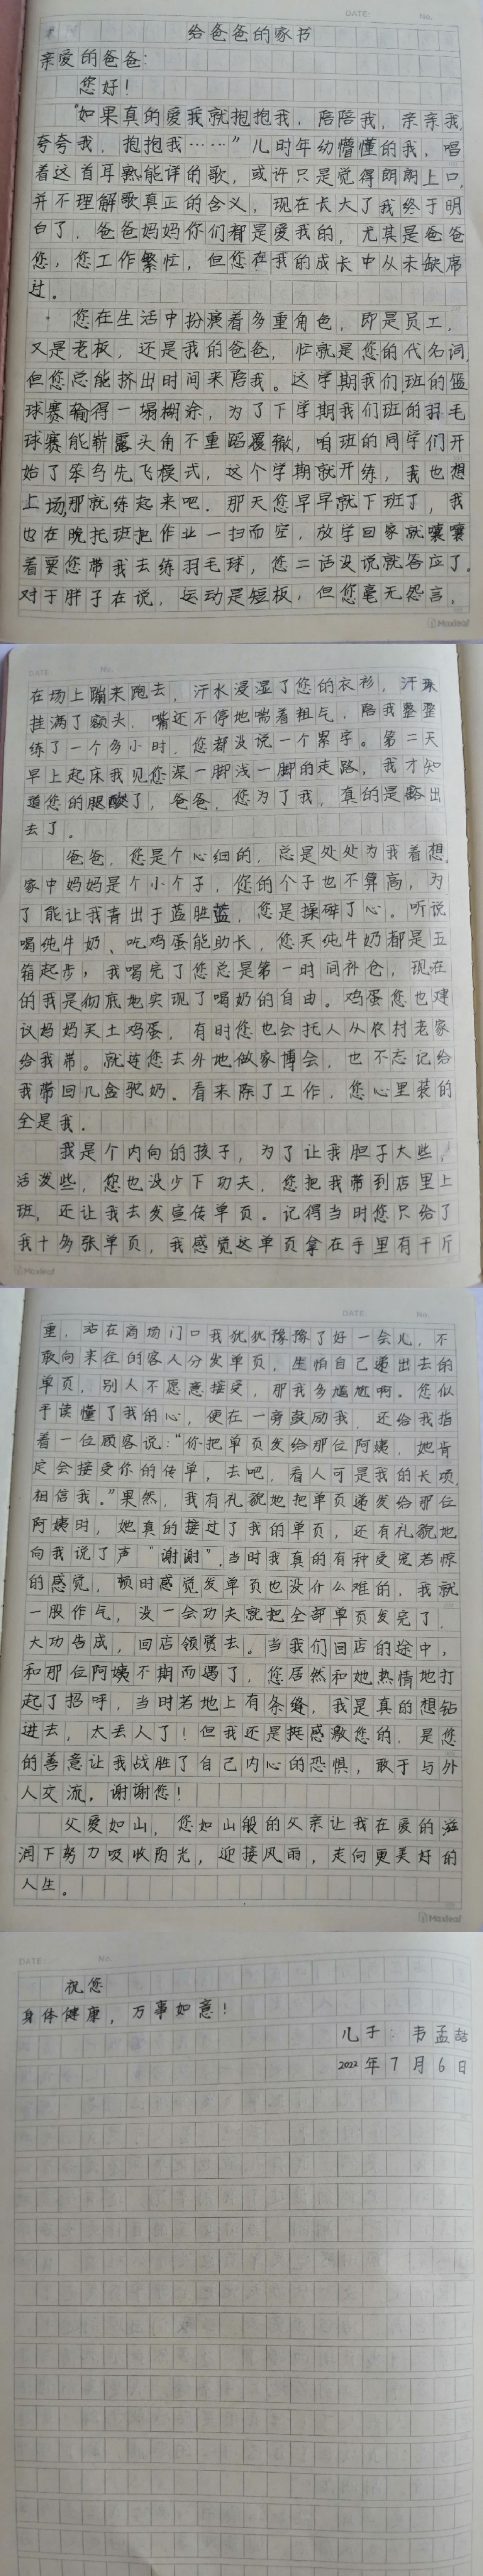 DATE: No.
给爸爸的家书
亲爱的爸爸：
您好！
“如果真的爱我就抱抱我，陪陪我，亲亲我，
夸夸我，抱抱我……”儿时年幼懵懂的我，唱
着这首耳熟能详的歌，或许只是觉得朗朗上口，
并不理解歌真正的含义，现在长大了我终于明
白了，爸爸妈妈你们都是爱我的，尤其是爸爸
您，您工作繁忙，但您在我的成长中从未缺席
过。
您在生活中扮演着多重角色，即是员工，
又是老板，还是我的爸爸，忙就是您的代名词，
但您总能挤出时间来陪我。这学期我们班的篮
球赛输得一塌糊涂，为了下学期我们班的羽毛
球赛能崭露头角不重蹈覆辙，咱班的同学们开
始了笨鸟先飞模式，这个学期就开练，我也想
上场，那就练起来吧。那天您早早就下班了，我
也在晚托班把作业一扫而空，放学回家就嚷嚷
着要您带我去练羽毛球，您二话没说就答应了。
对于胖子在说，运动是短板，但您毫无怨言，
Maxleaf
DATE No.
在场上蹦来跑去，汗水浸湿了您的衣衫，汗珠
挂满了额头，嘴还不停地喘着粗气，陪我整整
练了一个多小时，您都没说一个累字。第二天
早上起床我见您深一脚浅一脚的走路，我才知
道您的腿酸了，爸爸，您为了我，真的是豁出
去了。
爸爸，您是个心细的，总是处处为我着想，
家中妈妈是个小个子，您的个子也不算高，为
了能让我青出于蓝胜蓝，您是操碎了心。听说
喝纯牛奶、吃鸡蛋能助长，您买纯牛奶都是五
箱起步，我喝完了您总是第一时间补仓，现在
的我是彻底地实现了喝奶的自由。鸡蛋您也建
议妈妈买土鸡蛋，有时您也会托人从农村老家
给我带。就连您去外地做家博会，也不忘记给
我带回几盒驼奶。看来除了工作，您心里装的
全是我。
我是个内向的孩子，为了让我胆子大些，
活泼些，您也没少下功夫，您把我带到店里上
班，还让我去发宣传单页。记得当时您只给了
我十多张单页，我感觉这单页拿在手里有千斤
Maxleaf
DATE: No.
重，站在商场门口我犹犹豫豫了好一会儿，不
敢向来往的客人分发单页，生怕自己递出去的
单页，别人不愿意接受，那我多尴尬啊。您似
乎读懂了我的心，便在一旁鼓励我，还给我指
着一位顾客说：“你把单页发给那位阿姨，她肯
定会接受你的传单，去吧，看人可是我的长项，
相信我。”果然，我有礼貌地把单页递发给那位
阿姨时，她真的接过了我的单页，还有礼貌地
向我说了声“谢谢”，当时我真的有种受宠若惊
的感觉，顿时感觉发单页也没什么难的，我就
一股作气，没一会功夫就把全部单页发完了，
大功告成，回店领赏去。当我们回店的途中，
和那位阿姨不期而遇了，您居然和她热情地打
起了招呼，当时若地上有条缝，我是真的想钻
进去，太丢人了！但我还是挺感激您的，是您
的善意让我战胜了自己内心的恐惧，敢于与外
人交流，谢谢您！
父爱如山，您如山般的父亲让我在爱的滋
润下努力吸收阳光，迎接风雨，走向更美好的
人生。
Maxleaf
DATE: No.
祝您
身体健康，万事如意！
儿子：韦孟喆
2022年7月6日